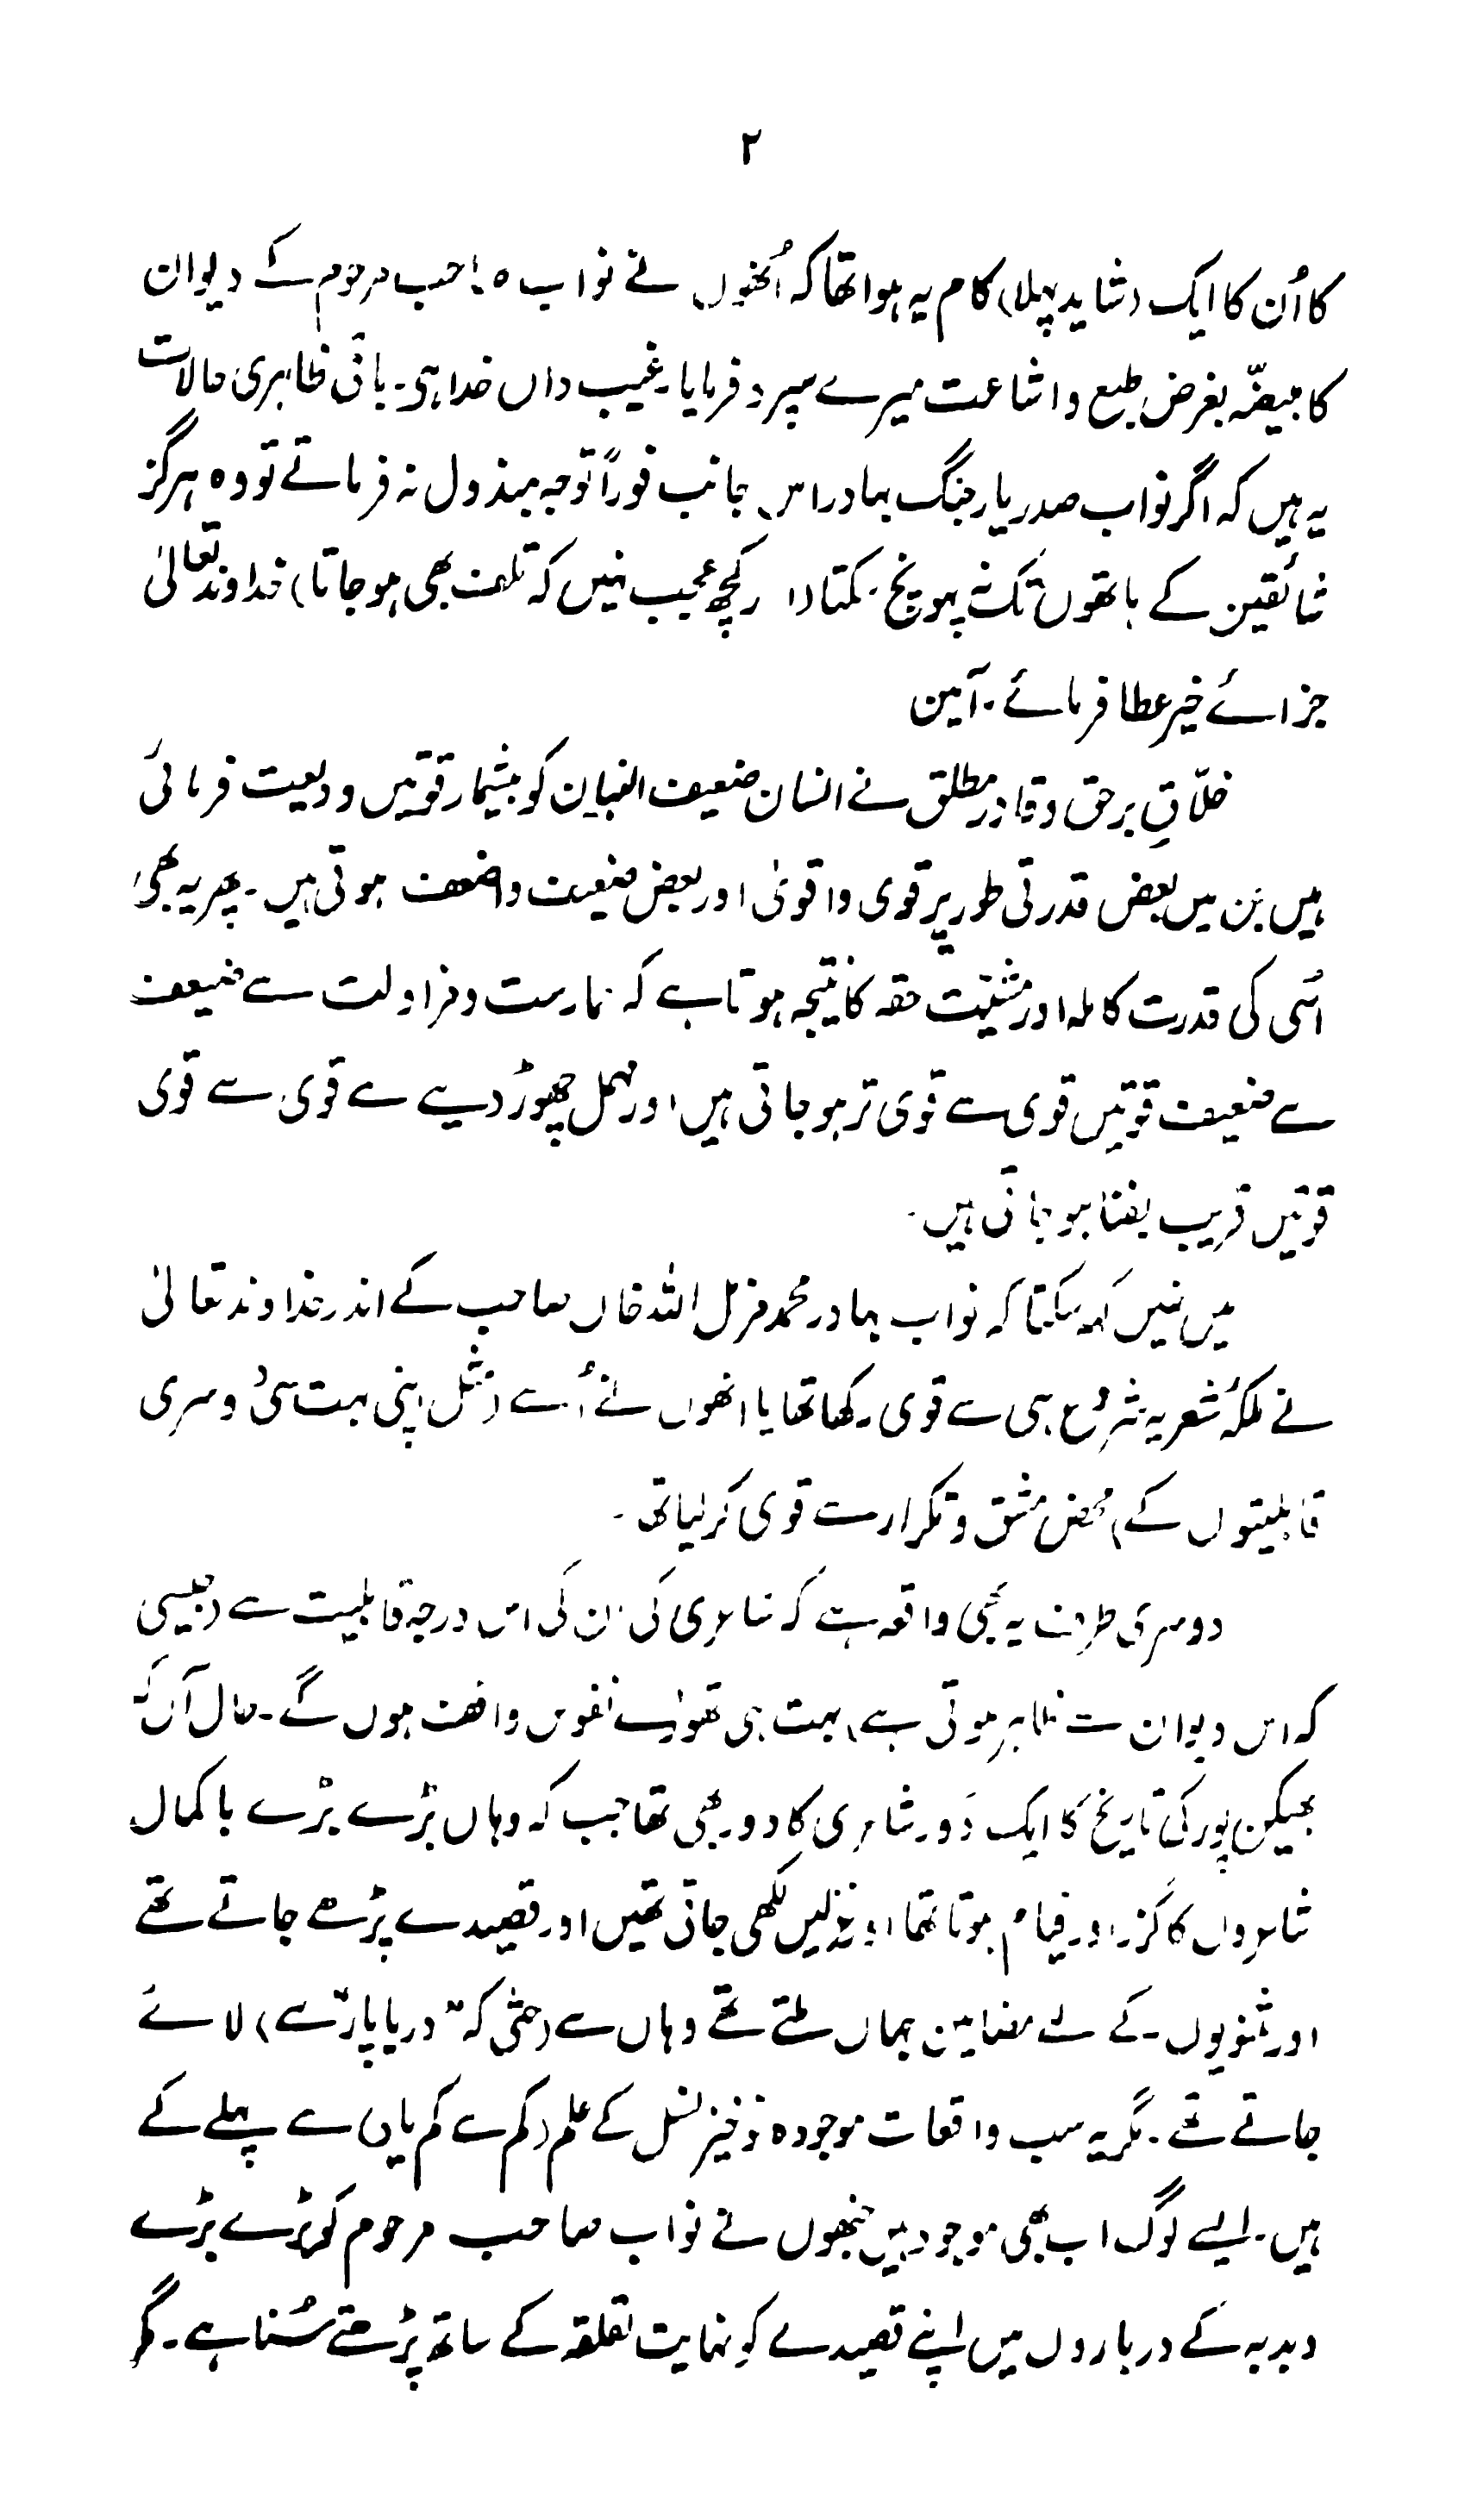 ۲
کا اُن کا ایک (شاید پہلا) کام یہ ہوا تھا کہ اُنھوں نے نواب صاحب مرحوم کے دیوان
کا مبیضّہ بغرض طبع و اشاعت میرے سپرد فرمایا۔ غیب داں خدا ہی۔ باقی ظاہری حالات
یہ ہیں کہ اگر نواب صدر یار جنگ بہادر اس جانب فوراً توجہ مبذول نہ فرماتے تو وہ ہرگز
شائقین کے ہاتھوں تک نہ پہونچ سکتا (اور کچھ عجیب نہیں کہ تلف بھی ہو جاتا) خداوند تعالیٰ
جزائے خیر عطا فرمائے۔ آمین
خلّاقِ برحق و قادر مطلق نے انسان ضعیف البنیان کو بیشمار قوتیں ودیعت فرمائی
ہیں جن میں بعض قدرتی طور پر قوی و اقویٰ اور بعض ضعیف و اضعف ہوتی ہیں۔ پھر یہ بھی
اُسی کی قدرت کاملہ اور مشیّت حقہ کا نتیجہ ہوتا ہے کہ ممارست و مزاولت سے ضعیف
سے ضعیف قوتیں قوی سے قوی تر ہو جاتی ہیں اور مہمل چھوڑ دینے سے قوی سے قوی
قوتیں قریب بفنا ہو جاتی ہیں۔
میں نہیں کہہ سکتا کہ نواب بہادر محمد مزمل اللہ خاں صاحب کے اندر خداوند تعالیٰ
نے ملکۂ شعریہ شروع ہی سے قوی رکھا تھا یا انھوں نے اُسے (مثل اپنی بہت سی دوسری
قابلیتوں کے) محض مشق و تکرار سے قوی کر لیا تھا۔
دوسری طرف یہ بھی واقعہ ہے کہ شاعری کی ان کی اس درجہ قابلیت سے (جیسی
کہ اس دیوان سے ظاہر ہوتی ہے) بہت ہی تھوڑے نفوس واقف ہوں گے۔ حال آں کہ
بھیکن پور کی تاریخ کا ایک دَور شاعری کا دور بھی تھا جب کہ وہاں بڑے بڑے باکمال
شاعروں کا گزر اور قیام ہوتا تھا اور غزلیں لکھی جاتی تھیں اور قصیدے پڑھے جاتے تھے
اور مثنویوں کے لئے مضامین جہاں ملتے تھے وہاں سے (حتّٰی کہ "دریا پار" سے) لائے
جاتے تھے۔ مگر یہ سب واقعات موجودہ نوخیز نسل کے علم (کم سے کم یاں) سے پہلے کے
ہیں۔ ایسے لوگ اب بھی موجود ہیں جنھوں نے نواب صاحب مرحوم کو بڑے بڑے
دبدبہ کے درباروں میں اپنے قصیدے کو نہایت لقلقہ کے ساتھ پڑھتے سُنا ہے۔ مگر